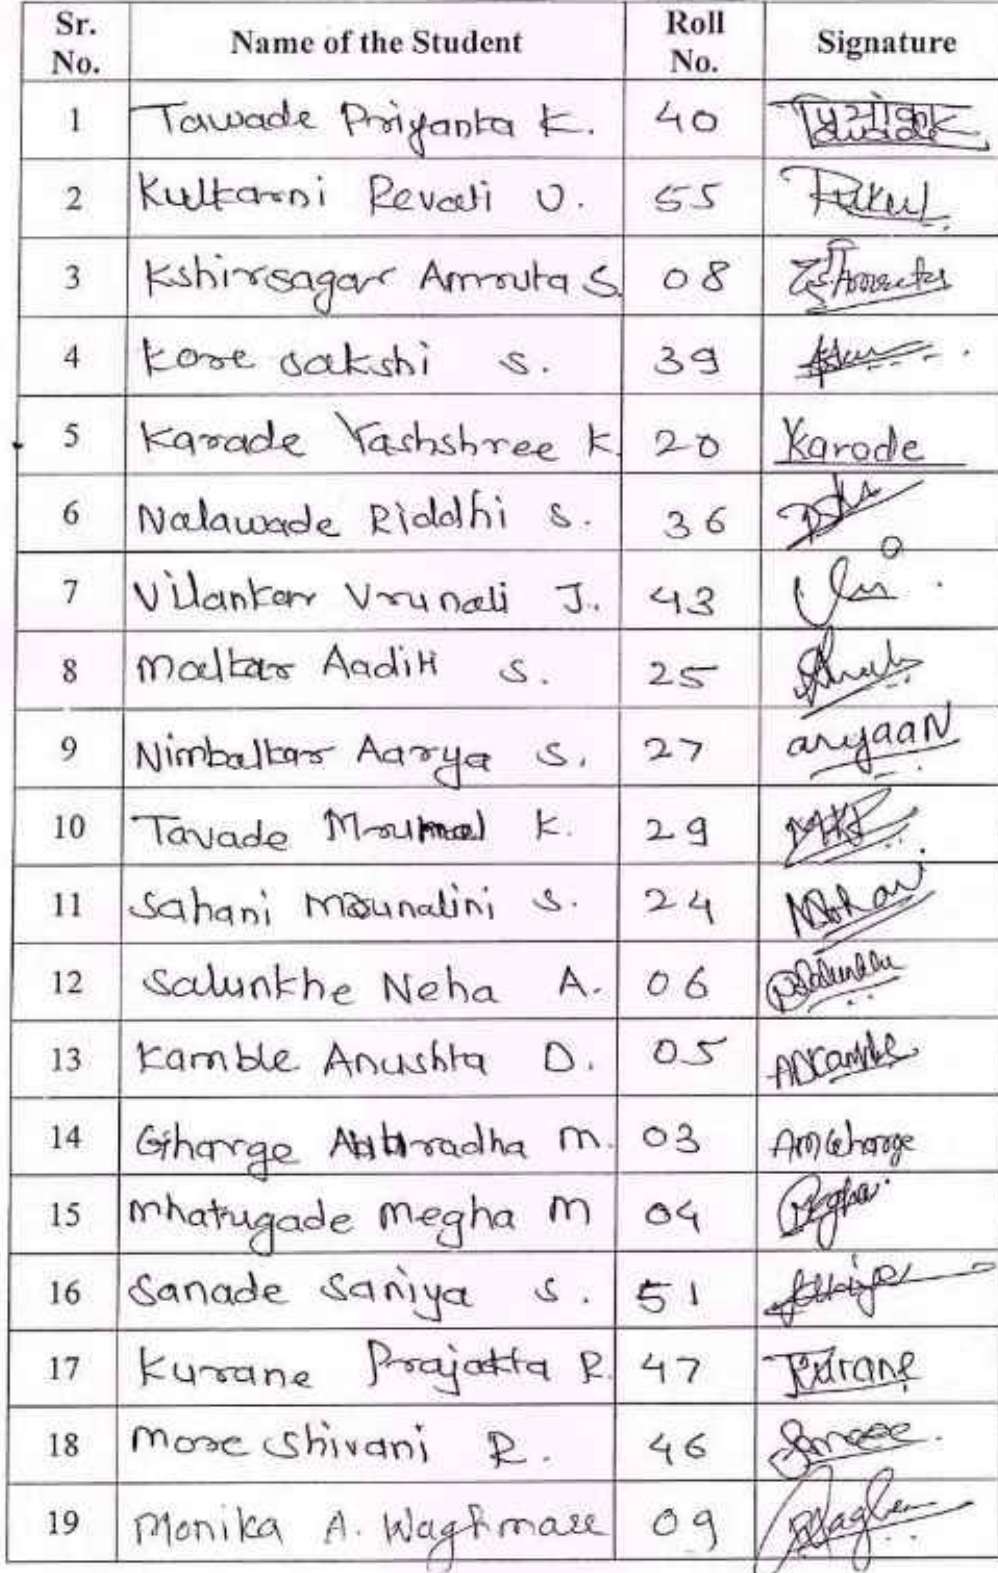 Sr. No. Name of the Student Roll No. Signature
1 Tawade Priyanka K. 40
2 Kulkarni Revati U. 55
3 Kshirsagar Amruta S. 08
4 Kore Sakshi S. 39
5 Karade Yashshree K. 20 Karade
6 Nalawade Riddhi S. 36
7 Vilankar Vrunali J. 43
8 Malkar Aaditi S. 25
9 Nimbalkar Aarya S. 27 aryaaN
10 Tavade Mrumal K. 29
11 Sahani Mrunalini S. 24
12 Salunkhe Neha A. 06
13 Kamble Anushka D. 05 ADKamble
14 Gharge Anuradha M. 03 AMGharge
15 Mhatugade Megha M 04 Megha
16 Sanade Saniya S. 51
17 Kurane Prajakta R. 47 Kurane
18 More Shivani R. 46
19 Monika A. Waghmare 09